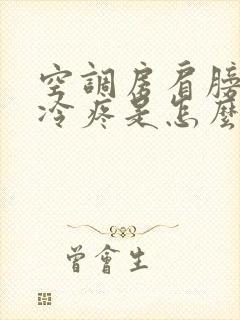 空調房肩膀
冷疼是怎麼
曾會生